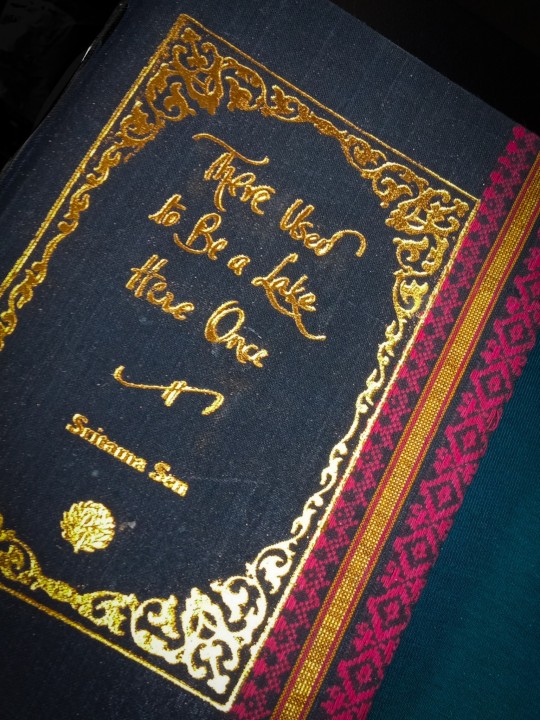 There Used
to Be a Lake
Here Once
Surama Sen